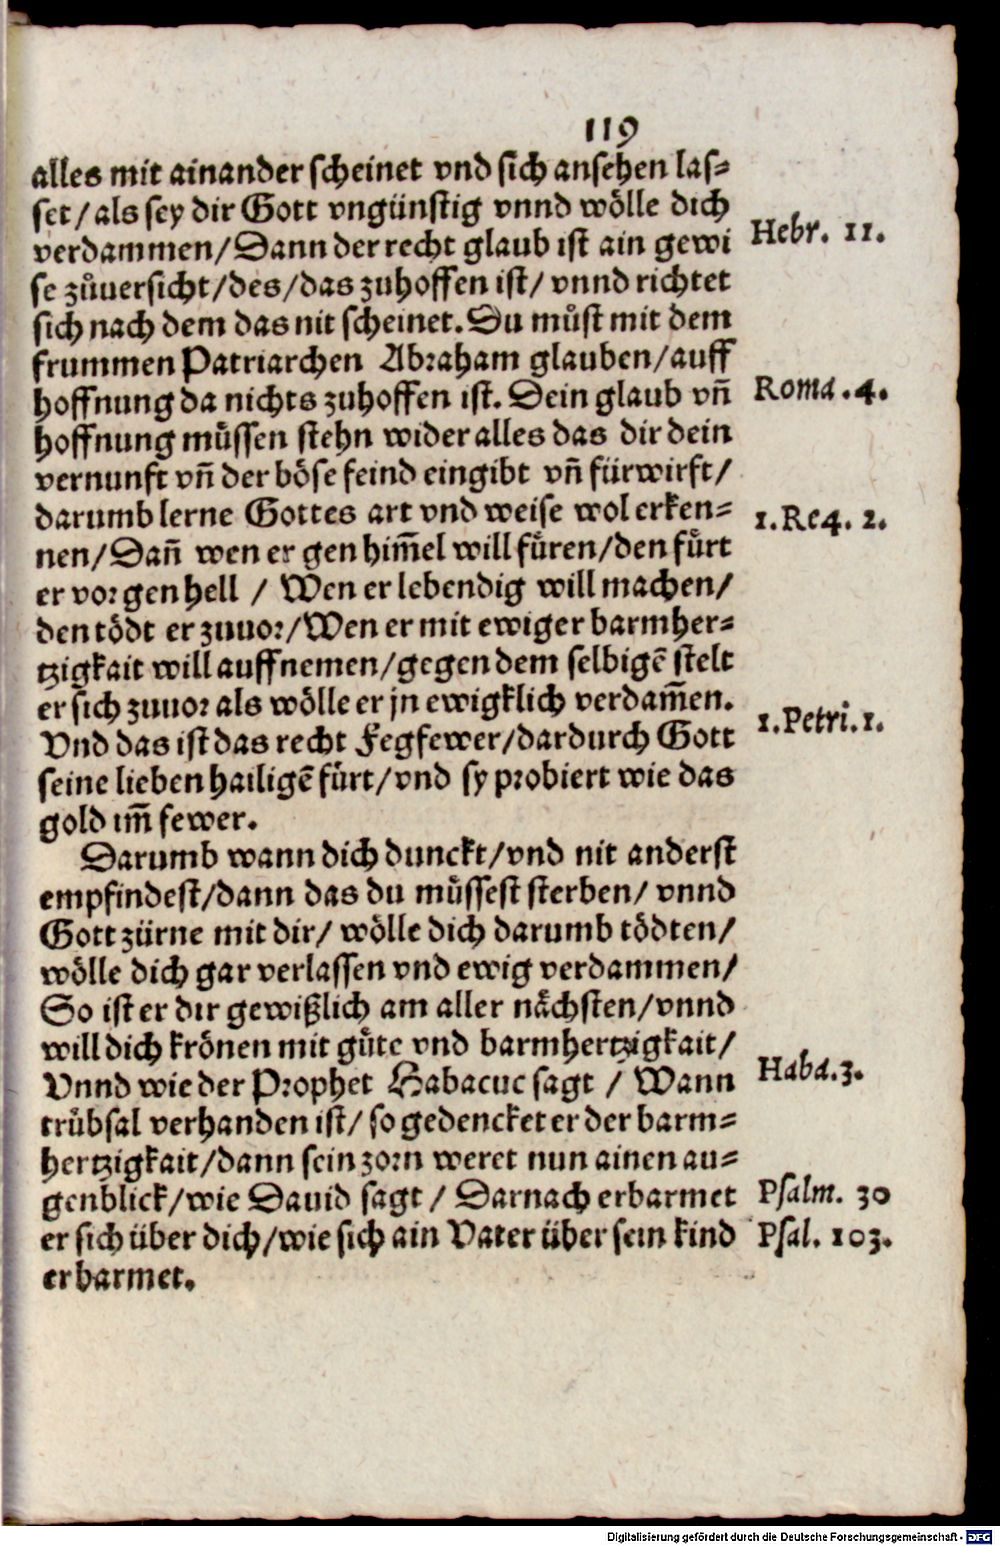 119
alles mit ainander scheinet vnd sich ansehen las=
set/als sey dir Gott vngünstig vnnd wölle dich
verdammen/Dann der recht glaub ist ain gewi
Hebr. 11.
se zůuersicht/des/das zuhoffen ist/ vnnd richtet
sich nach dem das nit scheinet. Du můst mit dem
frummen Patriarchen Abraham glauben/auff
hoffnung da nichts zuhoffen ist. Dein glaub vn̄
Roma .4.
hoffnung můssen stehn wider alles das dir dein
vernunft vn̄ der böse feind eingibt vn̄ fürwirft/
darumb lerne Gottes art vnd weise wol erken=
1. Re4. 2.
nen/Dan̄ wen er gen him̄el will fůren/den fůrt
er vor gen hell / Wen er lebendig will machen/
den tödt er zuuor/Wen er mit ewiger barmher=
tzigkait will auffnemen/gegen dem selbigē stelt
er sich zuuor als wölle er jn ewigklich verdam̄en.
1. Petri. 1.
Vnd das ist das recht Fegfewer/dardurch Gott
seine lieben hailigē fürt/vnd sy probiert wie das
gold im̄ fewer.
Darumb wann dich dunckt/vnd nit anderst
empfindest/dann das du můssest sterben/ vnnd
Gott zürne mit dir/ wölle dich darumb tödten/
wölle dich gar verlassen vnd ewig verdammen/
So ist er dir gewißlich am aller nächsten/vnnd
will dich krönen mit gůte vnd barmhertzigkait/
Vnnd wie der Prophet Habacuc sagt / Wann
Haba.3.
trůbsal verhanden ist/ so gedencket er der barm=
hertzigkait/dann sein zorn weret nun ainen au=
genblick/wie Dauid sagt / Darnach erbarmet
Psalm. 30
er sich über dich/wie sich ain Vater über sein kind
Psal. 103.
erbarmet.
Digitalisierung gefördert durch die Deutsche Forschungsgemeinschaft - DFG